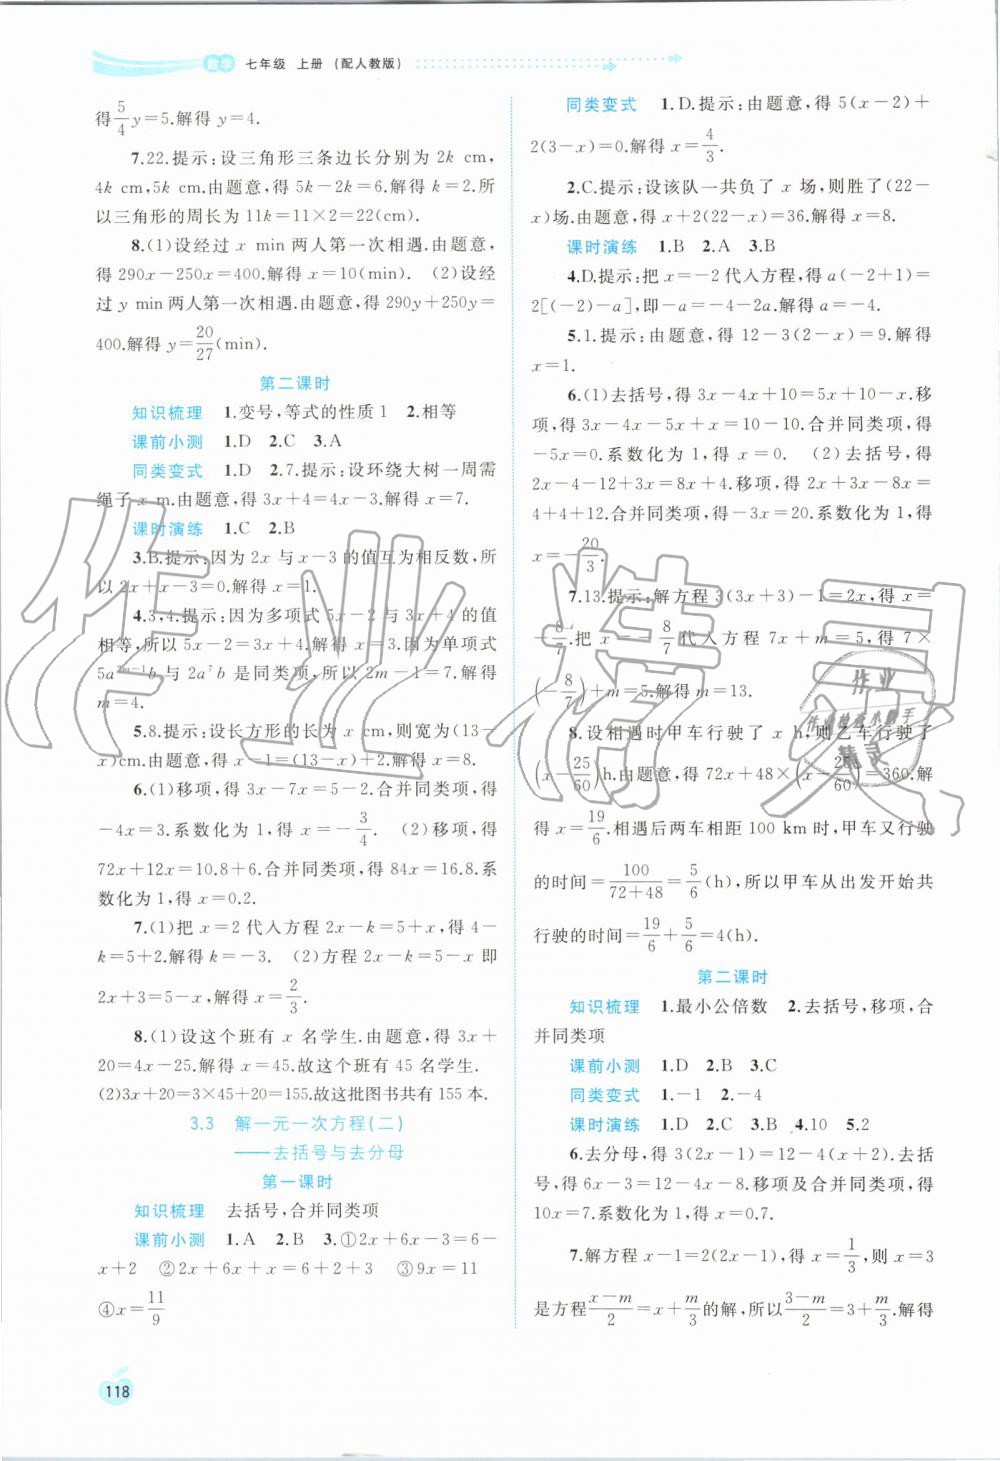 数学 七年级 上册 (配人教版)
得5/4y=5.解得 y=4.
7.22.提示:设三角形三条边长分别为 2k cm,
4k cm,5k cm.由题意,得 5k-2k=6.解得 k=2.所
以三角形的周长为 11k=11×2=22(cm).
8.(1)设经过 x min 两人第一次相遇.由题意,
得 290x-250x=400.解得 x=10(min). (2)设经
过 y min 两人第一次相遇.由题意,得 290y+250y=
400.解得 y=20/27(min).
第二课时
知识梳理 1.变号,等式的性质 1 2.相等
课前小测 1.D 2.C 3.A
同类变式 1.D 2.7.提示:设环绕大树一周需
绳子 x m.由题意,得 3x+4=4x-3.解得 x=7.
课时演练 1.C 2.B
3.B.提示:因为 2x 与 x-3 的值互为相反数,所
以 2x+x-3=0.解得 x=1.
4.3,4.提示:因为多项式 5x-2 与 3x+4 的值
相等,所以 5x-2=3x+4.解得 x=3.因为单项式
5a^{2m-1}b 与 2a^7b 是同类项,所以 2m-1=7.解得
m=4.
5.8.提示:设长方形的长为 x cm,则宽为(13-
x)cm.由题意,得 x-1=(13-x)+2.解得 x=8.
6.(1)移项,得 3x-7x=5-2.合并同类项,得
-4x=3.系数化为 1,得 x=-3/4. (2)移项,得
72x+12x=10.8+6.合并同类项,得 84x=16.8.系
数化为 1,得 x=0.2.
7.(1)把 x=2 代入方程 2x-k=5+x,得 4-
k=5+2.解得 k=-3. (2)方程 2x-k=5-k 即
2x+3=5-x,解得 x=2/3.
8.(1)设这个班有 x 名学生.由题意,得 3x+
20=4x-25.解得 x=45.故这个班有 45 名学生.
(2)3x+20=3×45+20=155.故这批图书共有 155 本.
3.3 解一元一次方程(二)
——去括号与去分母
第一课时
知识梳理 去括号,合并同类项
课前小测 1.A 2.B 3.①2x+6x-3=6-
x+2 ②2x+6x+x=6+2+3 ③9x=11
④x=11/9
118
同类变式 1.D.提示:由题意,得 5(x-2)+
2(3-x)=0.解得 x=4/3.
2.C.提示:设该队一共负了 x 场,则胜了(22-
x)场.由题意,得 x+2(22-x)=36.解得 x=8.
课时演练 1.B 2.A 3.B
4.D.提示:把 x=-2 代入方程,得 a(-2+1)=
2[(-2)-a],即-a=-4-2a.解得 a=-4.
5.1.提示:由题意,得 12-3(2-x)=9.解得
x=1.
6.(1)去括号,得 3x-4x+10=5x+10-x.移
项,得 3x-4x-5x+x=10-10.合并同类项,得
-5x=0.系数化为 1,得 x=0. (2)去括号,得
2x-4-12+3x=8x+4.移项,得 2x+3x-8x=
4+4+12.合并同类项,得-3x=20.系数化为 1,得
x=-20/3.
7.13.提示:解方程 3(3x+3)-1=2x,得 x=
-8/7.把 x=-8/7代入方程 7x+m=5,得 7×
(-8/7)+m=5.解得 m=13.
8.设相遇时甲车行驶了 x h,则乙车行驶了
(x-25/60)h.由题意,得 72x+48×(x-25/60)=360.解
得 x=19/6.相遇后两车相距 100 km 时,甲车又行驶
的时间=100/(72+48)=5/6(h),所以甲车从出发开始共
行驶的时间=19/6+5/6=4(h).
第二课时
知识梳理 1.最小公倍数 2.去括号,移项,合
并同类项
课前小测 1.D 2.B 3.C
同类变式 1.-1 2.-4
课时演练 1.D 2.C 3.B 4.10 5.2
6.去分母,得 3(2x-1)=12-4(x+2).去括
号,得 6x-3=12-4x-8.移项及合并同类项,得
10x=7.系数化为 1,得 x=0.7.
7.解方程 x-1=2(2x-1),得 x=1/3,则 x=3
是方程(x-m)/2=x+m/3的解,所以(3-m)/2=3+m/3.解得
作业精灵
作业
作业检查小助手
精灵